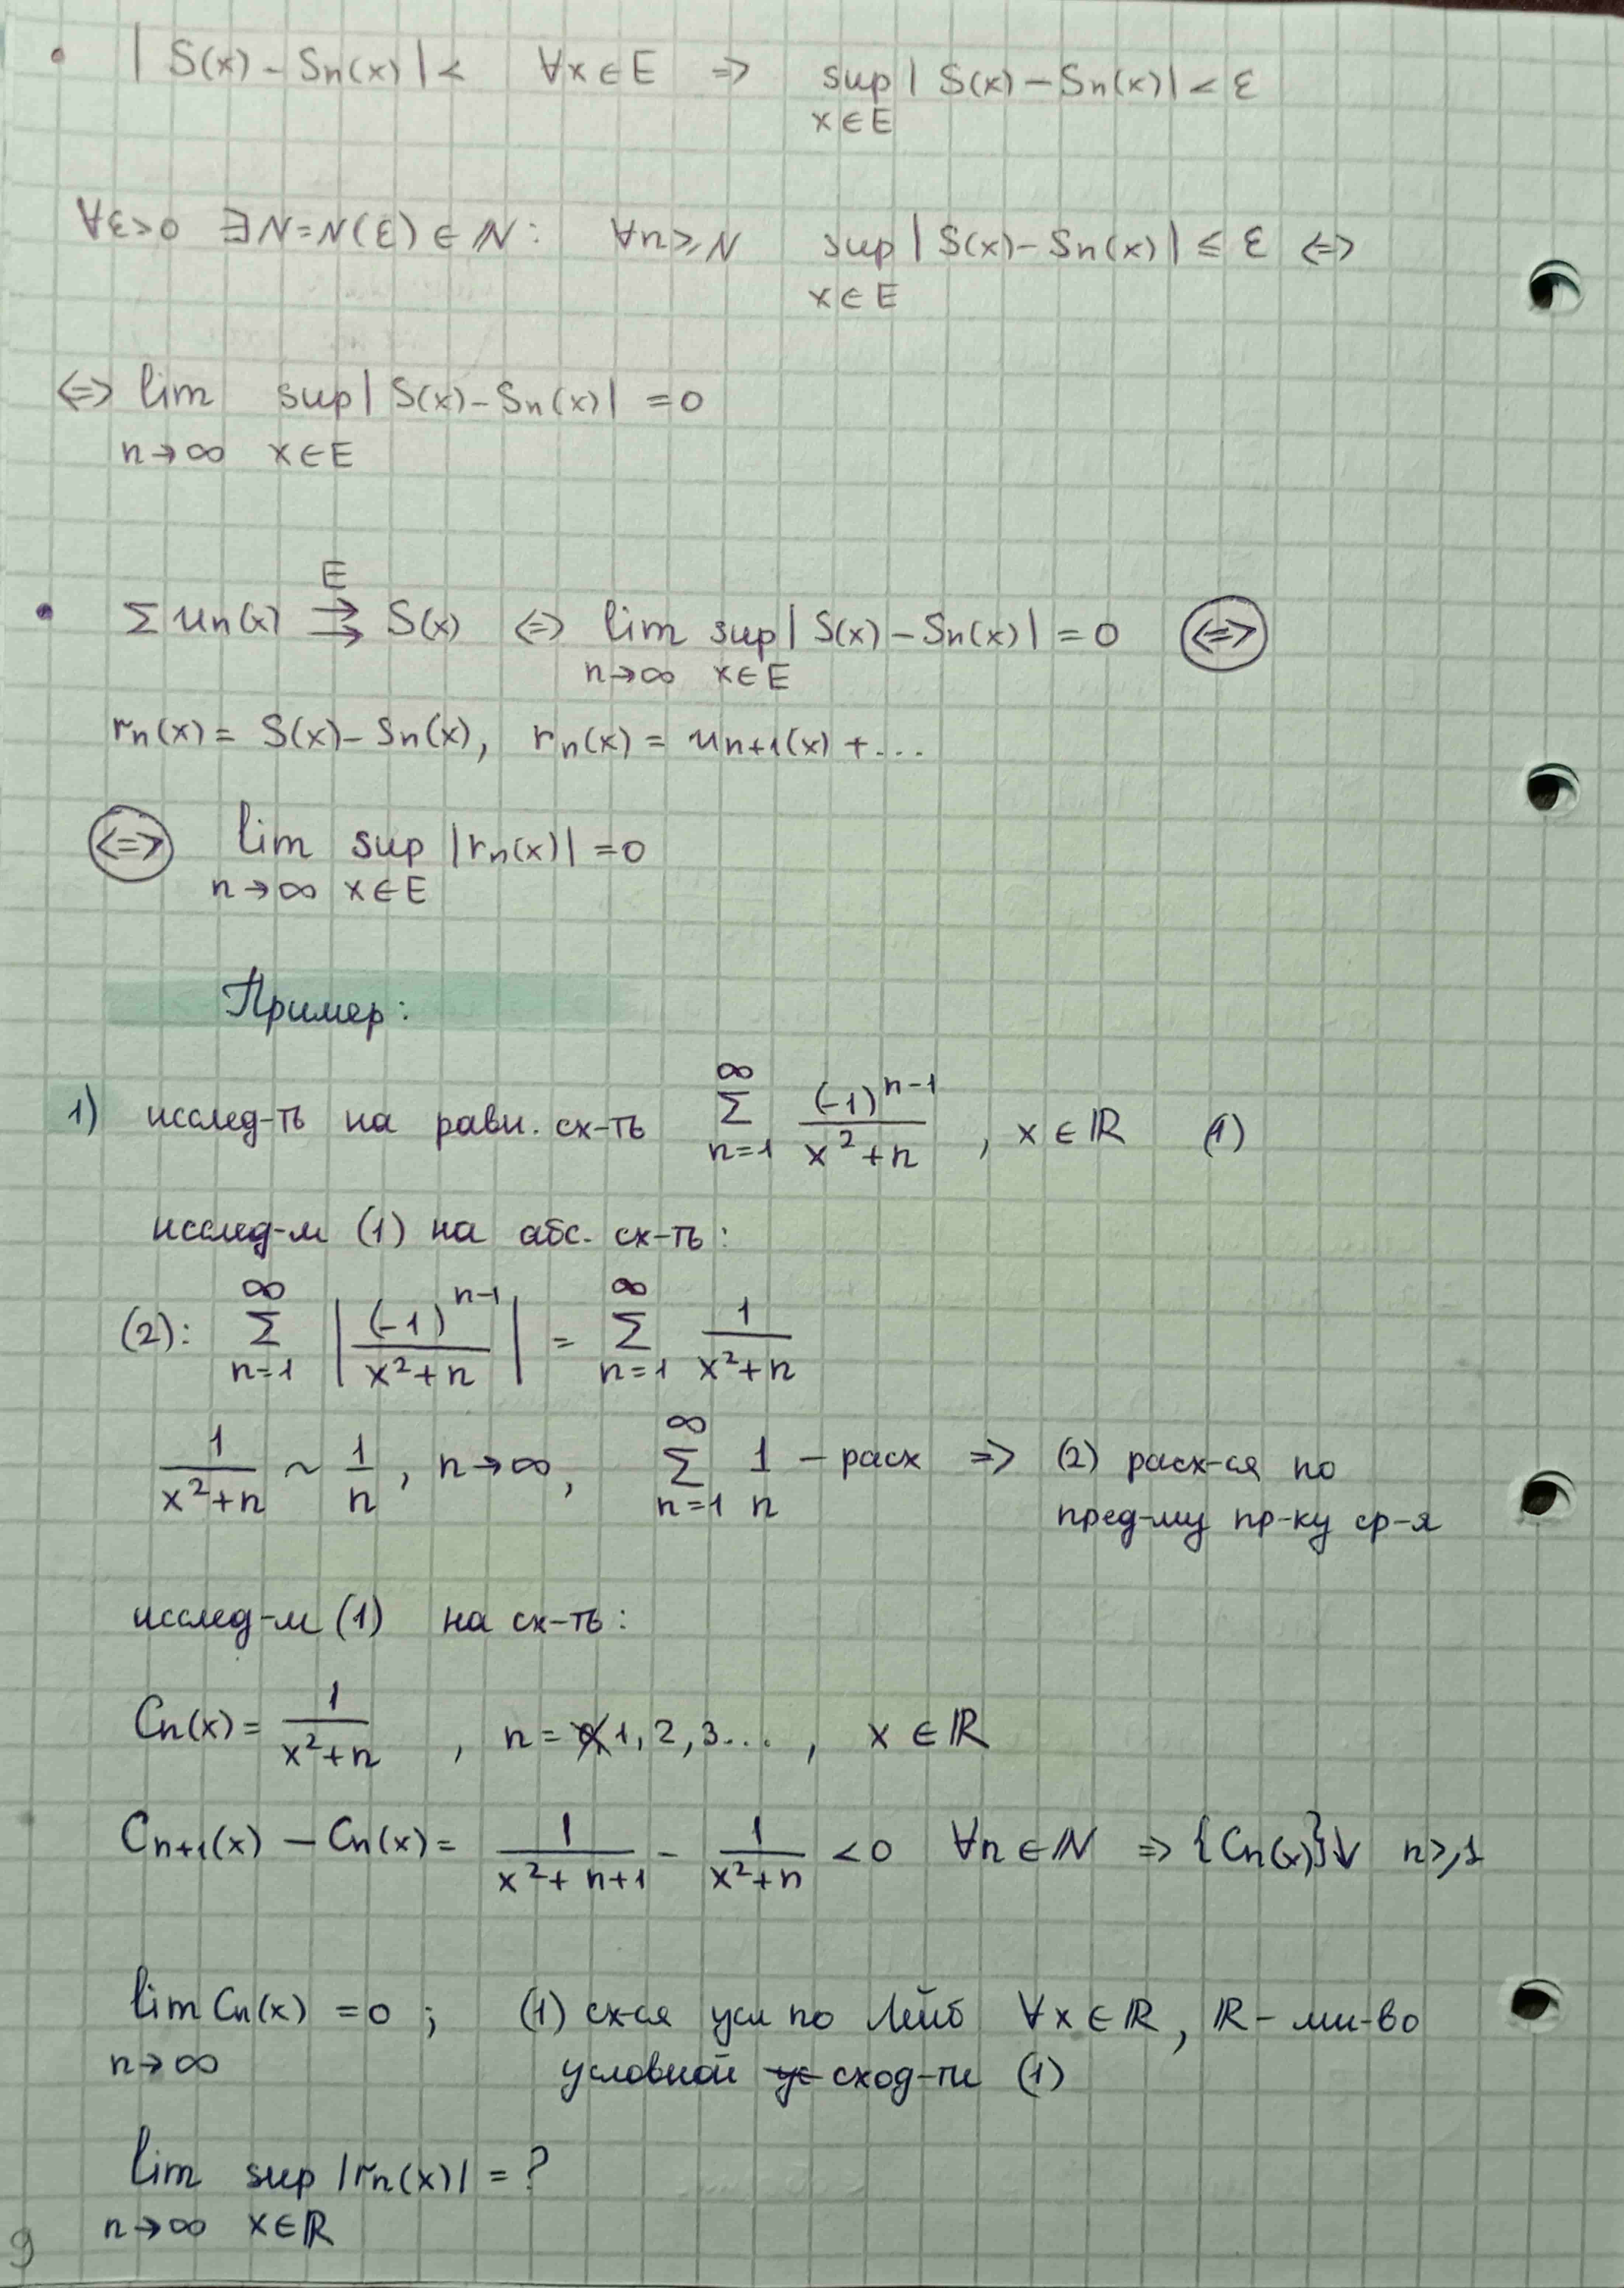 • | S(x) – Sn(x) | < ∀x ∈ E => sup | S(x) – Sn(x) | < ε
x ∈ E
∀ε>0 ∃N=N(ε) ∈ ℕ: ∀n ≥ N sup | S(x) – Sn(x) | ≤ ε <=>
x ∈ E
<=> lim sup | S(x) – Sn(x) | = 0
n→∞ x∈E
E
• Σ un(x) ⇉ S(x) <=> lim sup | S(x) – Sn(x) | = 0 <=>
n→∞ x∈E
rn(x) = S(x) – Sn(x), rn(x) = un+1(x) + ...
<=> lim sup |rn(x)| = 0
n→∞ x∈E
Пример:
1) исслед-ть на равн. сх-ть ∞Σn=1 (-1)^(n-1) / (x²+n), x ∈ ℝ (1)
исслед-м (1) на абс. сх-ть:
(2): ∞Σn=1 | (-1)^(n-1) / (x²+n) | = ∞Σn=1 1/(x²+n)
1/(x²+n) ~ 1/n, n→∞, ∞Σn=1 1/n – расх => (2) расх-ся по
пред-му пр-ку ср-я
исслед-м (1) на сх-ть:
Cn(x) = 1/(x²+n), n = 1, 2, 3..., x ∈ ℝ
Cn+1(x) – Cn(x) = 1/(x²+n+1) – 1/(x²+n) < 0 ∀n ∈ ℕ => {Cn(x)}↓ n≥1
lim Cn(x) = 0; (1) сх-ся усл по Лейб ∀x ∈ ℝ, ℝ – мн-во
n→∞ условной сход-ти (1)
lim sup |rn(x)| = ?
n→∞ x∈ℝ
9